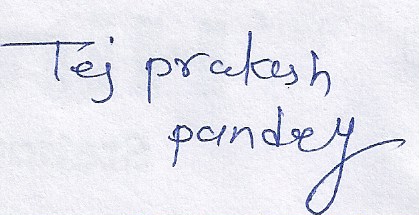 Tej prakesh
pandey